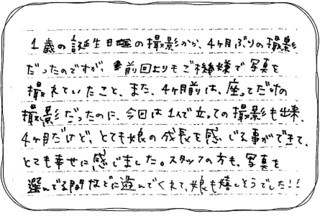 1歳の誕生日の撮影から、4ヶ月ぶりの撮影
だったのですが、前回よりもご機嫌で写真を
撮れていたこと、また、4ヶ月前は、座ってだけの
撮影だったのに、今回は1人で立っての撮影も出来、
4ヶ月だけど、とても娘の成長を感じる事ができて、
とても幸せに感じました。スタッフの方も、写真を
選んでる間などに遊んでくれて、娘も嬉しそうでした!!